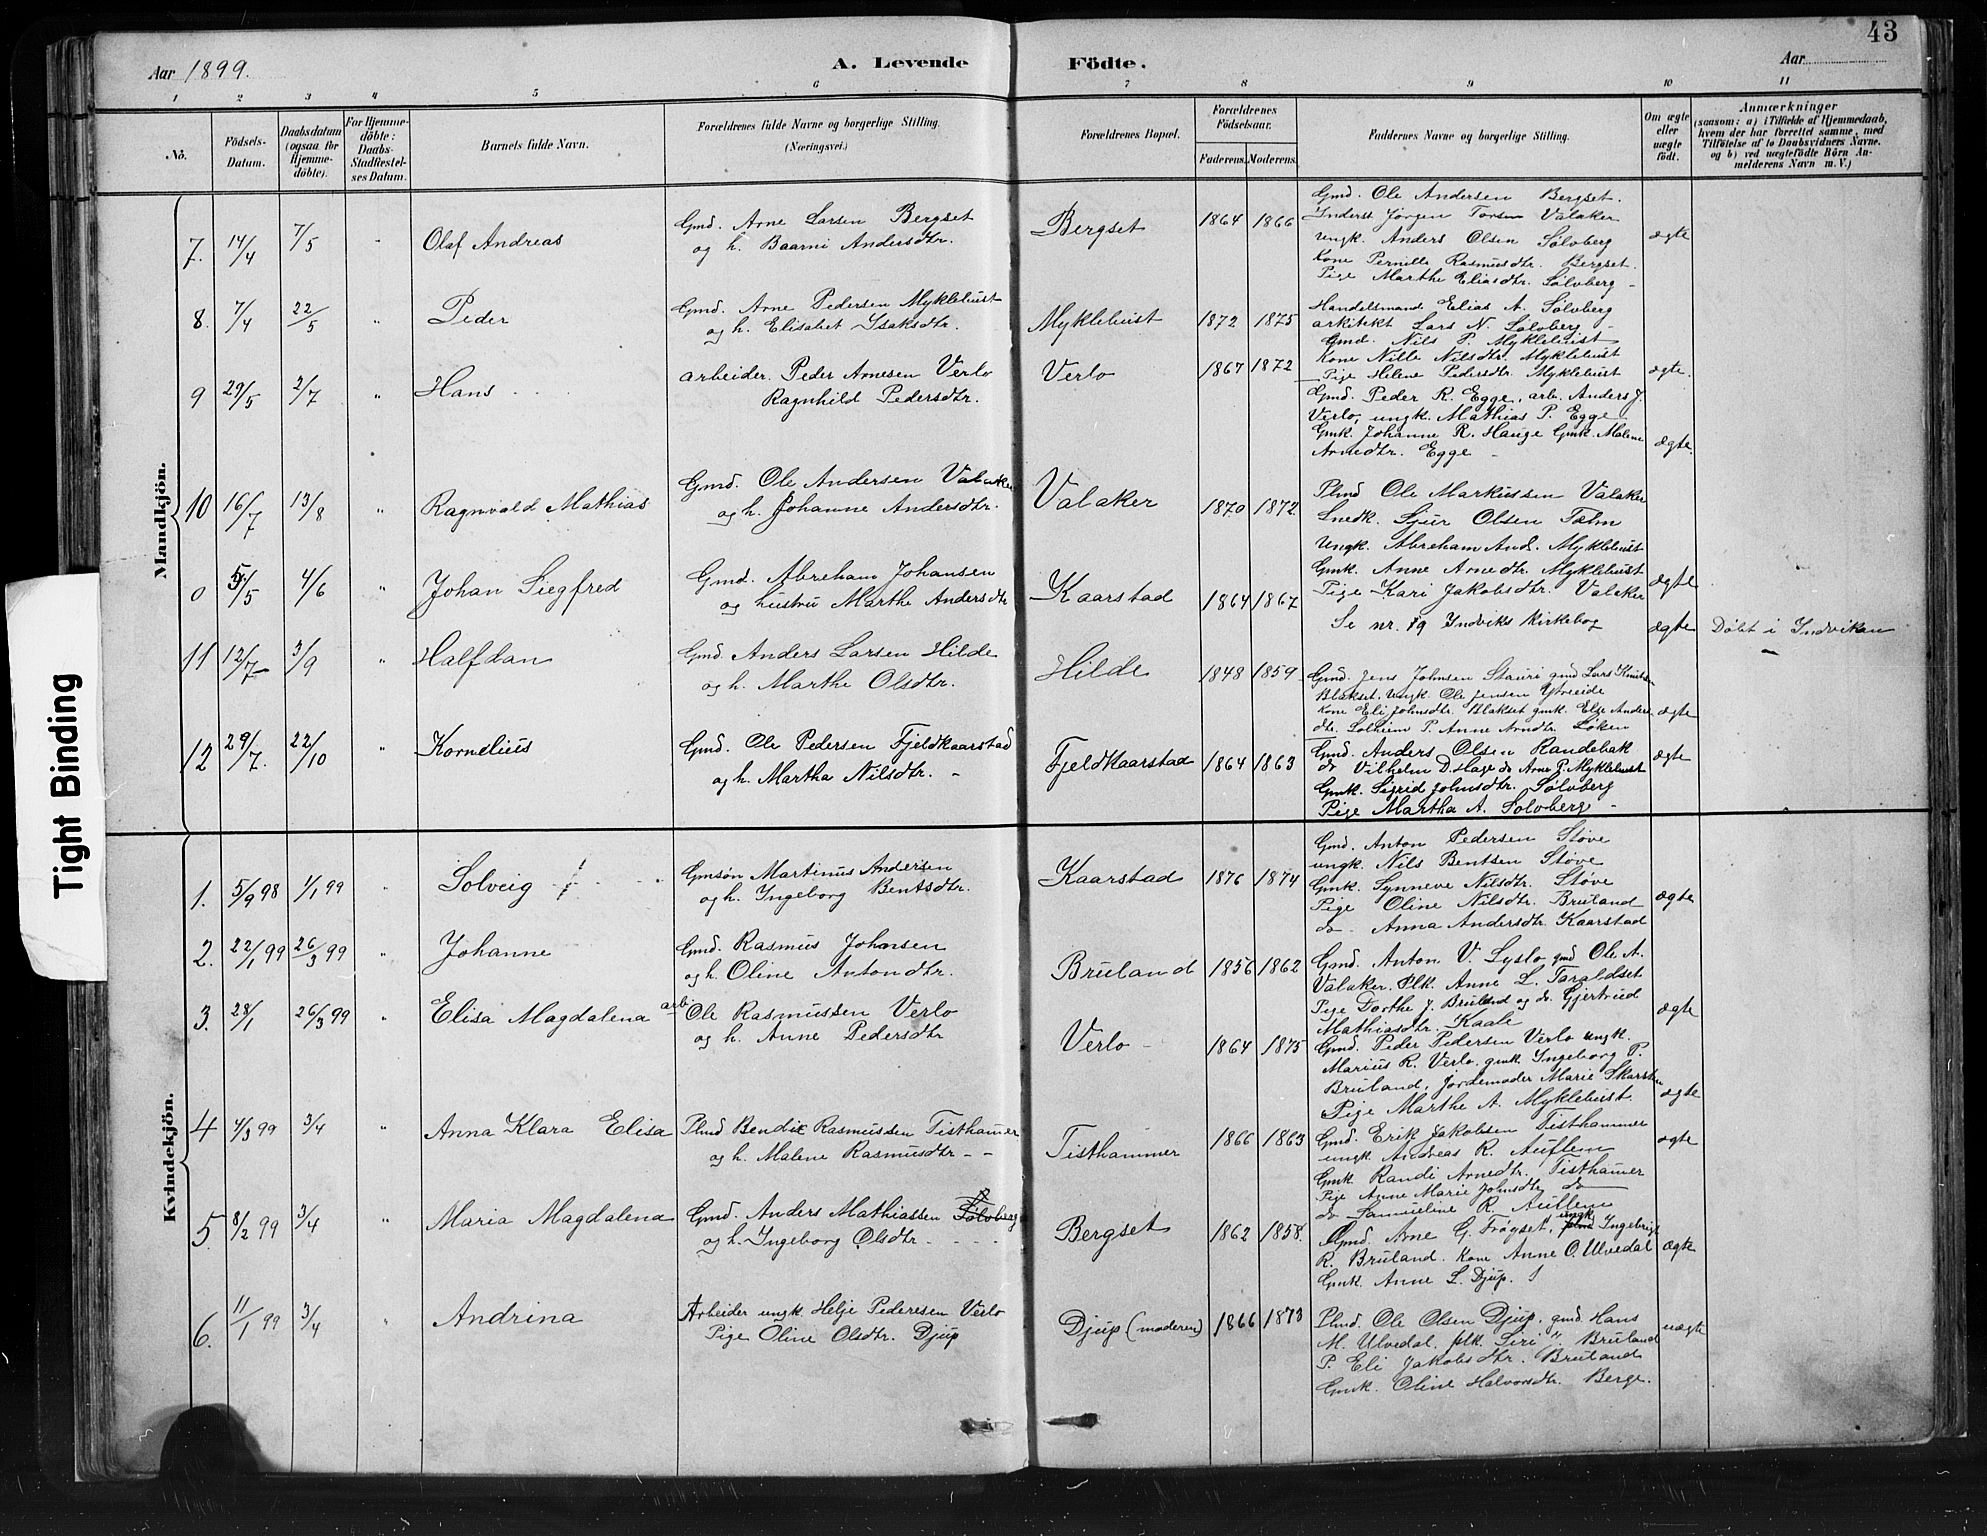 43
Aar 1899.
A. Levende Födte.
Aar
1 2 3 4 5 6 7 8 9 10 11
No.
Födsels-Datum.
Daabsdatum (ogsaa for Hjemme-döbte).
For Hjemme-döbte: Daabs-Stadfæstel-ses Datum.
Barnets fulde Navn.
Forældrenes fulde Navne og borgerlige Stilling. (Næringsvei.)
Forældrenes Bopæl.
Forældrenes Födselsaar.
Faderens. Moderens.
Faddernes Navne og borgerlige Stilling.
Om ægte eller uægte födt.
Anmærkninger
(saasom: a) i Tilfælde af Hjemmedaab,
hvem der har forrettet samme, med
Tilföielse af to Daabsvidners Navne.
og b) ved uægtefödte Börn An-
melderens Navn m. V.)
Mandkjön.
7. 14/4 7/5 " Olaf Andreas
Gmd. Arne Larsen Bergset
og h. Baarni Andersdtr.
Bergset 1864 1866
Gmd. Ole Andersen Bergset.
Inderst Jørgen Torsen Valaker
Ungk. Anders Olsen Sølvberg
Kone Pernille Rasmusdtr. Bergset.
Pige Marthe Eliasdtr. Sølvberg -
ægte
8. 7/4 22/5 " Peder
Gmd. Arne Pedersen Myklebust
og h. Elisabet Isaksdtr.
Myklebust 1872 1875
Handelsmand Elias A. Sølvberg
arkitekt Lars N. Sølvberg -
Gmd. Nils P. Myklebust
Kone Nille Nilsdtr. Myklebust
Pige Helene Pedersdtr. Myklebust
ægte.
9 29/5 2/7 " Hans
arbeider. Peder Arnesen Verlo
Ragnhild Pedersdtr.
Verlo 1867 1872
Gmd. Peder R. Egge, arb. Anders J.
Verlo, ungk. Mathias P. Egge
Gmk. Johanne R. Hauge Gmk. Malene
Arnedtr. Egge -
ægte
10 16/7 13/8 " Ragnvald Mathias
Gmd. Ole Andersen Valaker
og h. Johanne Andersdtr.
Valaker 1870 1872.
Plmd Ole Markussen Valaker
Snedk. Sjur Olsen
Ungk. Abreham And. Myklebust
Gmk. Anne Arnedtr. Myklebust
Pige Kari Jakobsdtr. Valaker
ægte
0 5/5 4/6 " Johan Siegfred
Gmd. Abreham Johansen
og hustru Marthe Andersdtr
Kaarstad 1864 1867
Se nr. 19 Indviks Kirkebog
ægte Døbt i Indviken
11 12/7 3/9 " Halfdan
Gmd. Anders Larsen Hilde
og h. Marthe Olsdtr.
Hilde 1848 1859
Gmd. Jens Johnsen Stauri gmd Lars Knutsen
Blakset. Ungk. Ole Jensen Ytreeide
Kone Eli Johnsdtr. Blakset gmk. Else Anders
dtr. Solheim P. Anne Arndtr. Løken
ægte
12 29/7. 22/10 " Kornelius
Gmd. Ole Pedersen Fjeldkaarstad
og h. Martha Nilsdtr. -
Fjeldkaarstad 1864 1863
Gmd. Anders Olsen Randebak
do Vilhelm D. Hage do Arne P. Myklebust
Gmk. Sigrid Johnsdtr. Sølvberg
Pige Martha A. Solvberg -
ægte
Kvindekjön.
1. 5/9 98 1/1 99 " Solveig
Gmsøn Martinus Andersen
og h. Ingeborg Bentsdtr.
Kaarstad 1876 1874
Gmd. Anton Pedersen Støve
ungk. Nils Bentsen Støve
Gmk. Synneve Nilsdtr. Støve
Pige Oline Nilsdtr. Bruland
do. Anna Andersdtr. Kaarstad
ægte
2. 22/1 99 26/3 99 " Johanne
Gmd. Rasmus Johnsen
og h. Oline Antondtr.
Bruland 1856 1862
Gmd. Anton V. Lyslo gmd Ole A.
Valaker. Plk. Anne L. Taraldset
Pige Dorthe J. Bruland og do. Gjertrud
Mathiasdtr. Kaale
ægte
3. 28/1 26/3 99 " Elisa Magdalena
arb. Ole Rasmussen Verlo
og h. Anne Pedersdtr
Verlo - 1864 1875
Gmd. Peder Pedersen Verlo ungk.
Marius R. Verlo. gmk. Ingeborg P.
Bruland, Jordemoder Marie Skarsten
Pige Marthe A. Myklebust.
ægte
4 4/3 99 3/4 " Anna Klara Elisa
Plmd Bendik Rasmussen Tisthamer
og h. Malene Rasmusdtr - -
Tisthammer 1866 1863
Gmd. Erik Jakobsen Tisthammer
ungk Andreas R. Auflem
Gmk Randi Arnedtr. Tisthamer
Pige Anne Marie Johnsdtr do
do Samueline R. Auflem
ægte
5. 8/2 99 3/4 " Maria Magdalena
Gmd. Anders Mathiassen Sølvberg
og h. Ingeborg Olsdtr.
Bergset 1862 1858.
Gmd. Arne G. Frøyset, ungk Ingebrigt
R. Bruland. Kone Anne O. Ulvedal
Gmk. Anne L. Djup.
ægte
6. 11/1 99 3/4 " Andrina
Arbeider ungk Helje Pedersen Verlo
Pige Oline Olsdtr. Djup
Djup (moderen) 1866 1873
Plmd. Ole Olsen Djup, gmd. Hans
M. Ulvedal. plk. Siri ". Bruland
P. Eli Jakobsdtr. Bruland
Gmk. Oline Halvorsdtr. Berge.
uægte
Tight Binding